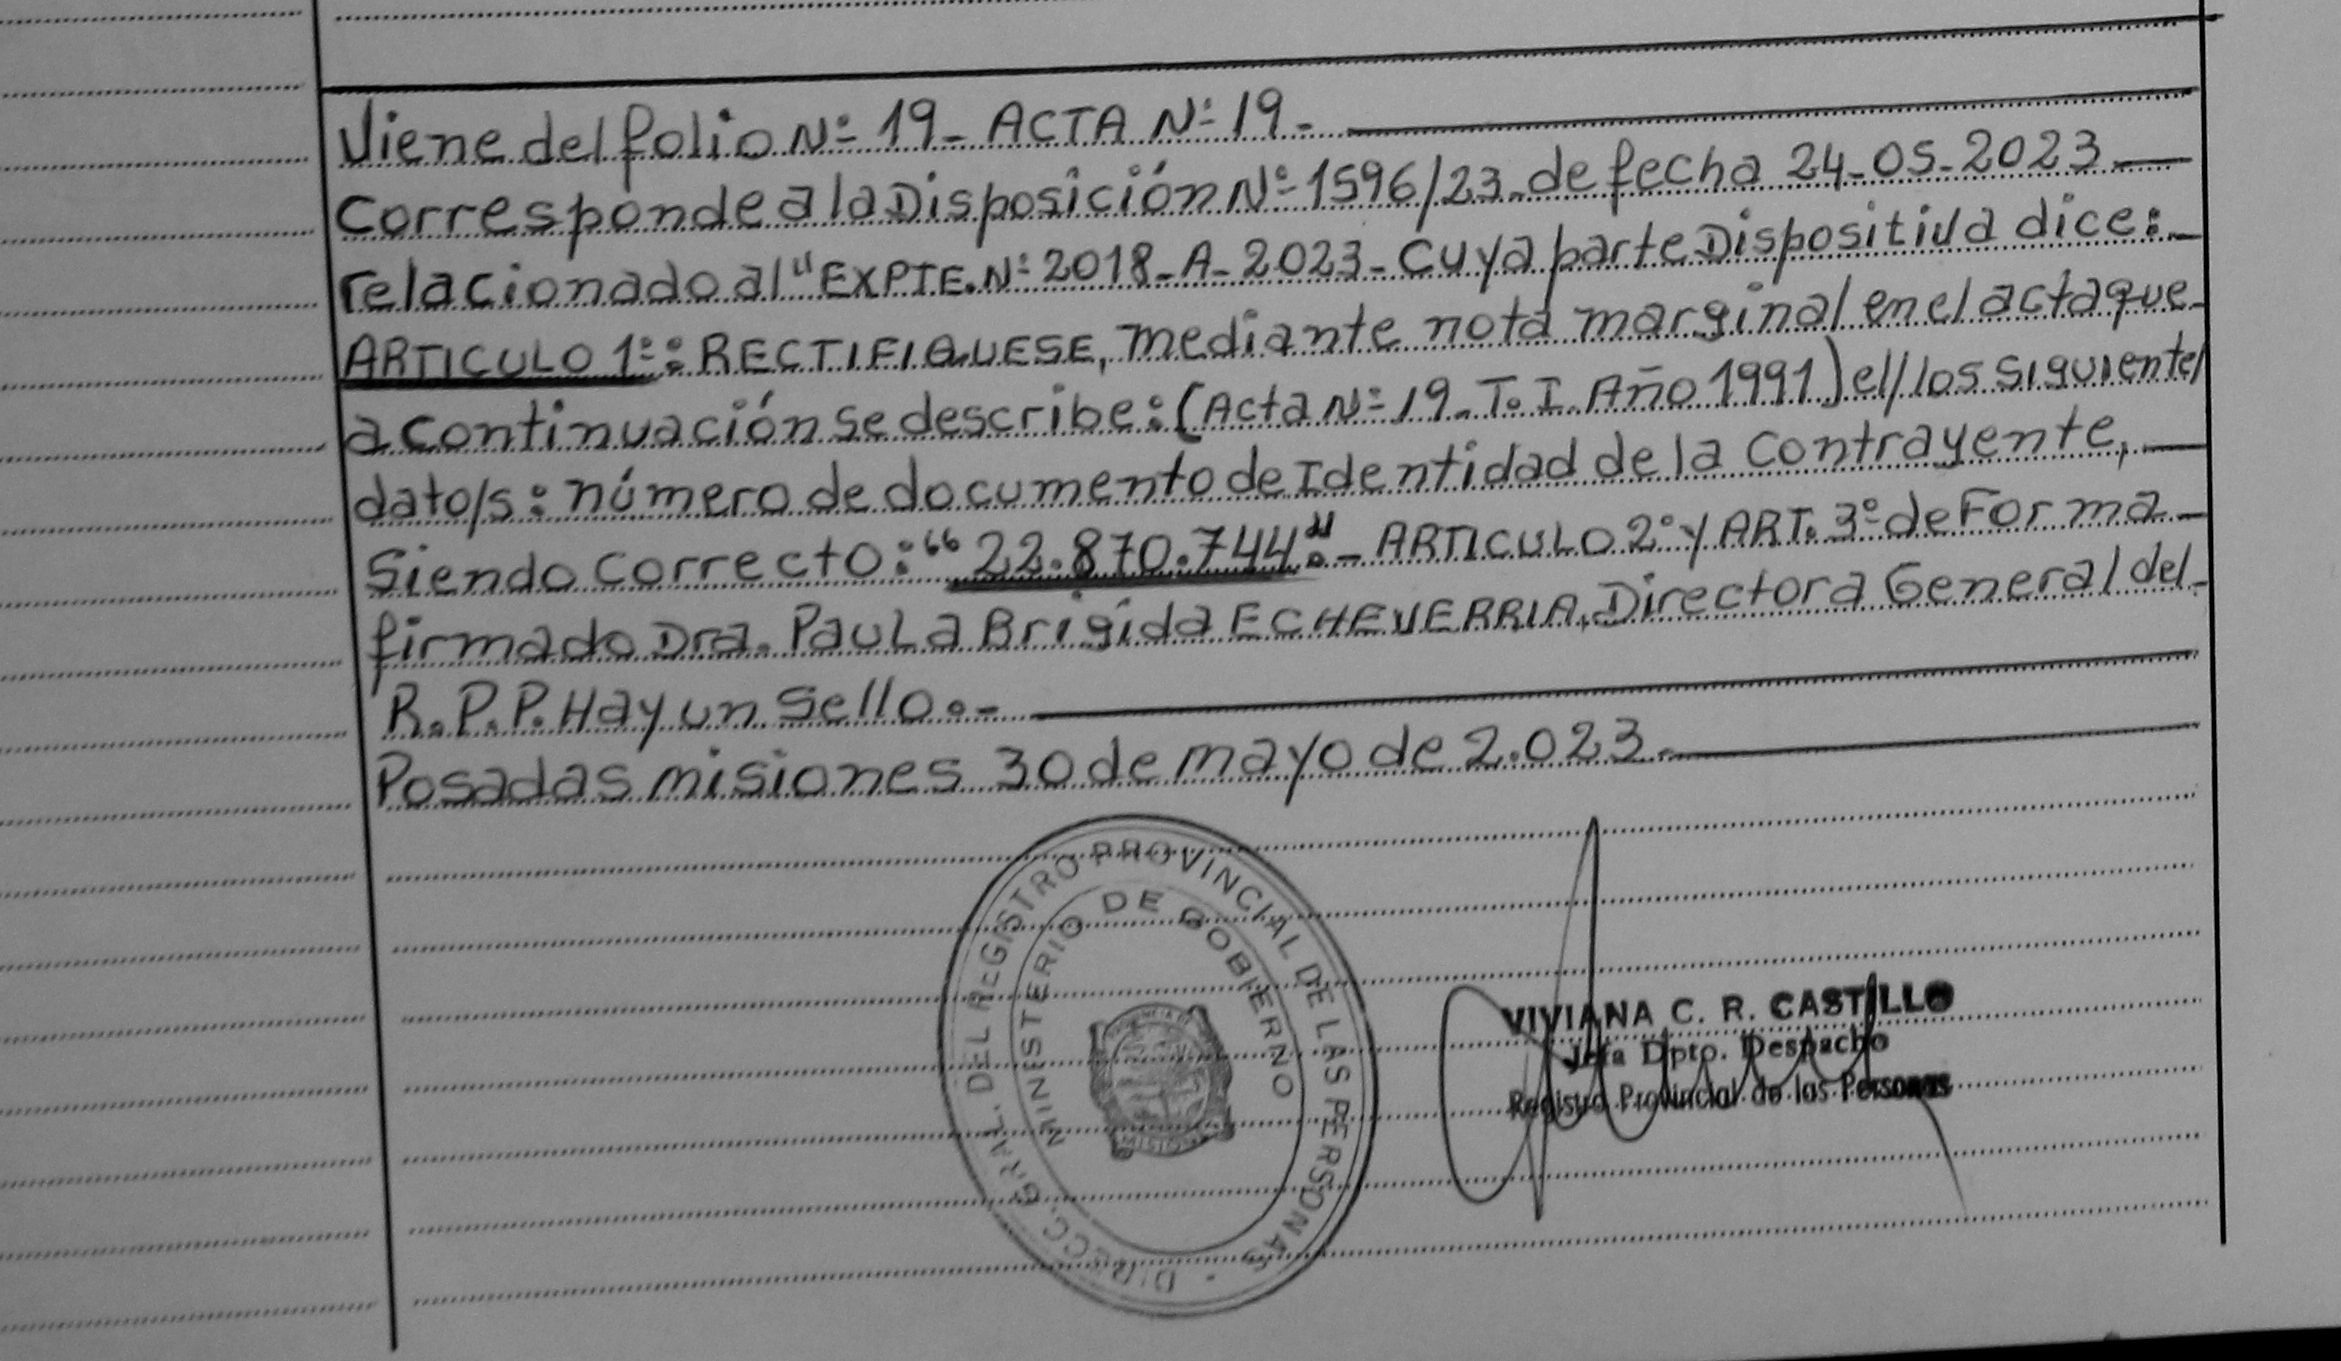 Viene del folio Nº 19 - ACTA Nº 19 -
Corresponde a la Disposición Nº 1596/23 - de fecha 24-05-2023 -
relacionado al "EXPTE. Nº 2018 - A - 2023 - cuya parte Dispositiva dice: -
ARTICULO 1º: RECTIFIQUESE, mediante nota marginal en el acta que -
a continuación se describe: (Acta Nº 19 - T. I. Año 1991) el/los siguiente/
dato/s: número de documento de Identidad de la Contrayente, -
Siendo correcto: "22.870.744". - ARTICULO 2º y ART. 3º de Forma -
firmado Dra. Paula Brigida ECHEVERRIA, Directora General del -
R.P.P. Hay un sello. -
Posadas misiones 30 de mayo de 2.023. -
DIRECC. GRAL. DEL REGISTRO PROVINCIAL DE LAS PERSONAS
MINISTERIO DE GOBIERNO
VIVIANA C. R. CASTILLO
Jefa Dpto. Despacho
Registro Provincial de las Personas